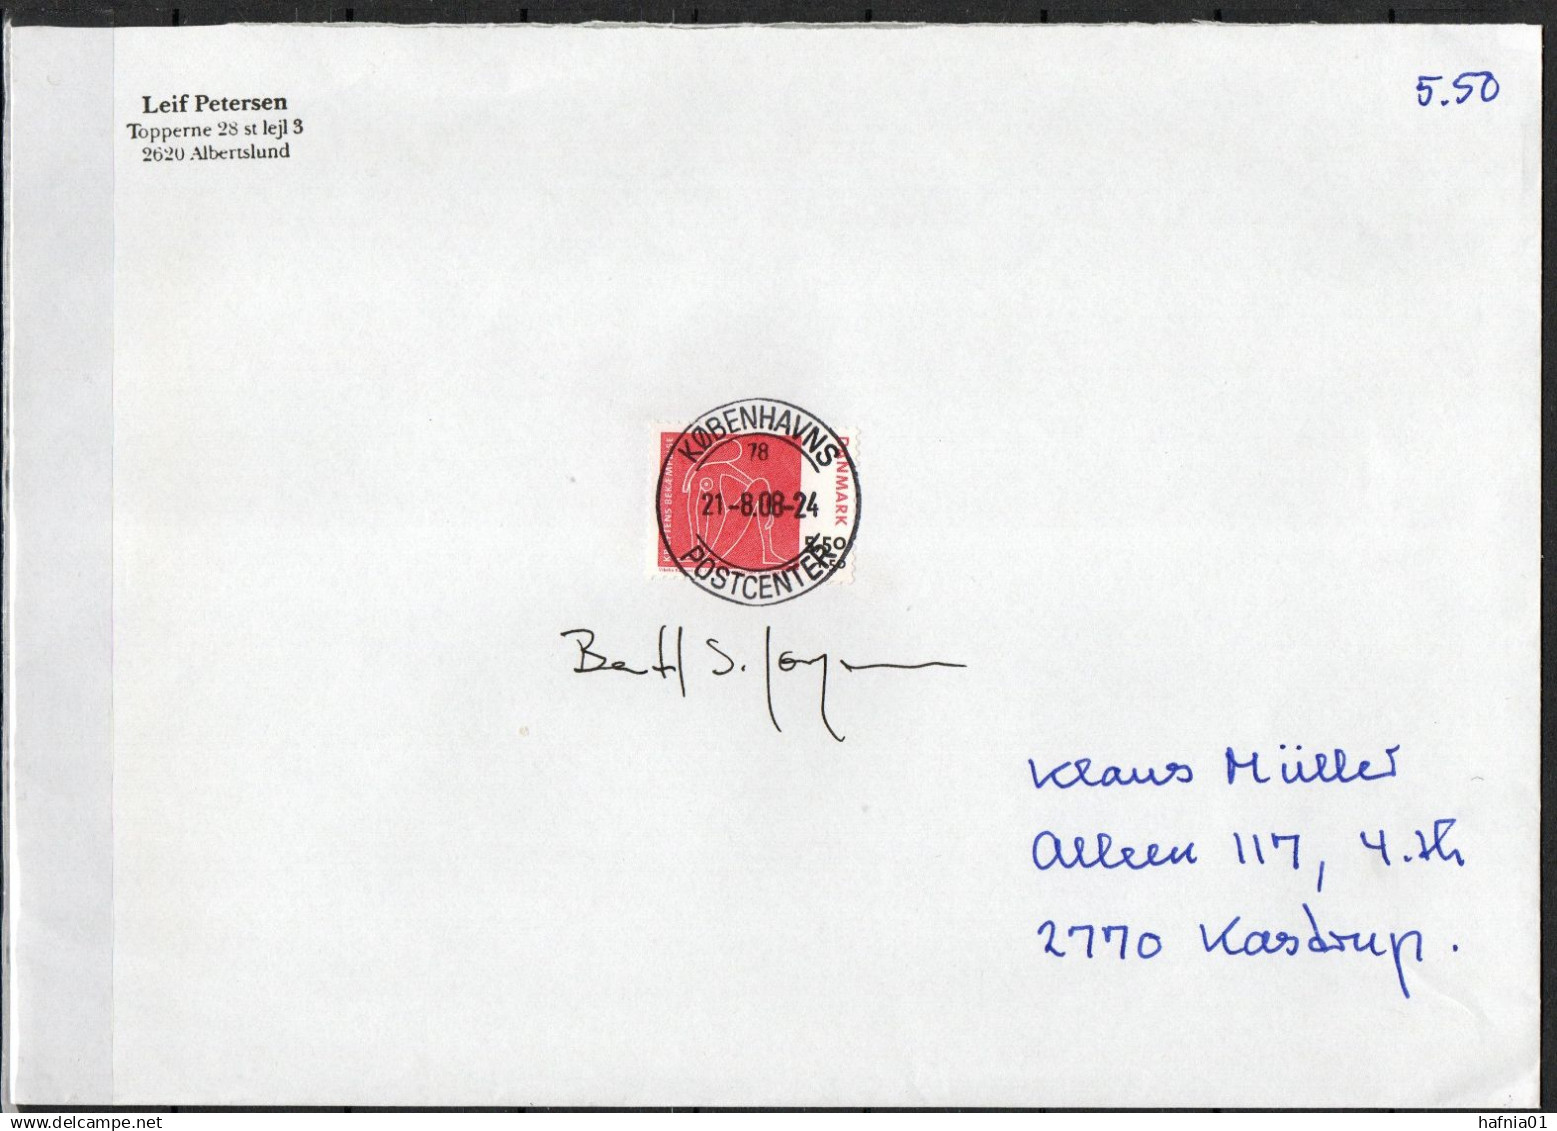 Leif Petersen
Topperne 28 st lejl 3
2620 Albertslund
5.50
KØBENHAVNS
78
21-8.08-24
POSTCENTER
DANMARK
5.50
Klaus Müller
Alleen 117, 4.th
2770 Kastrup.
hafnia01